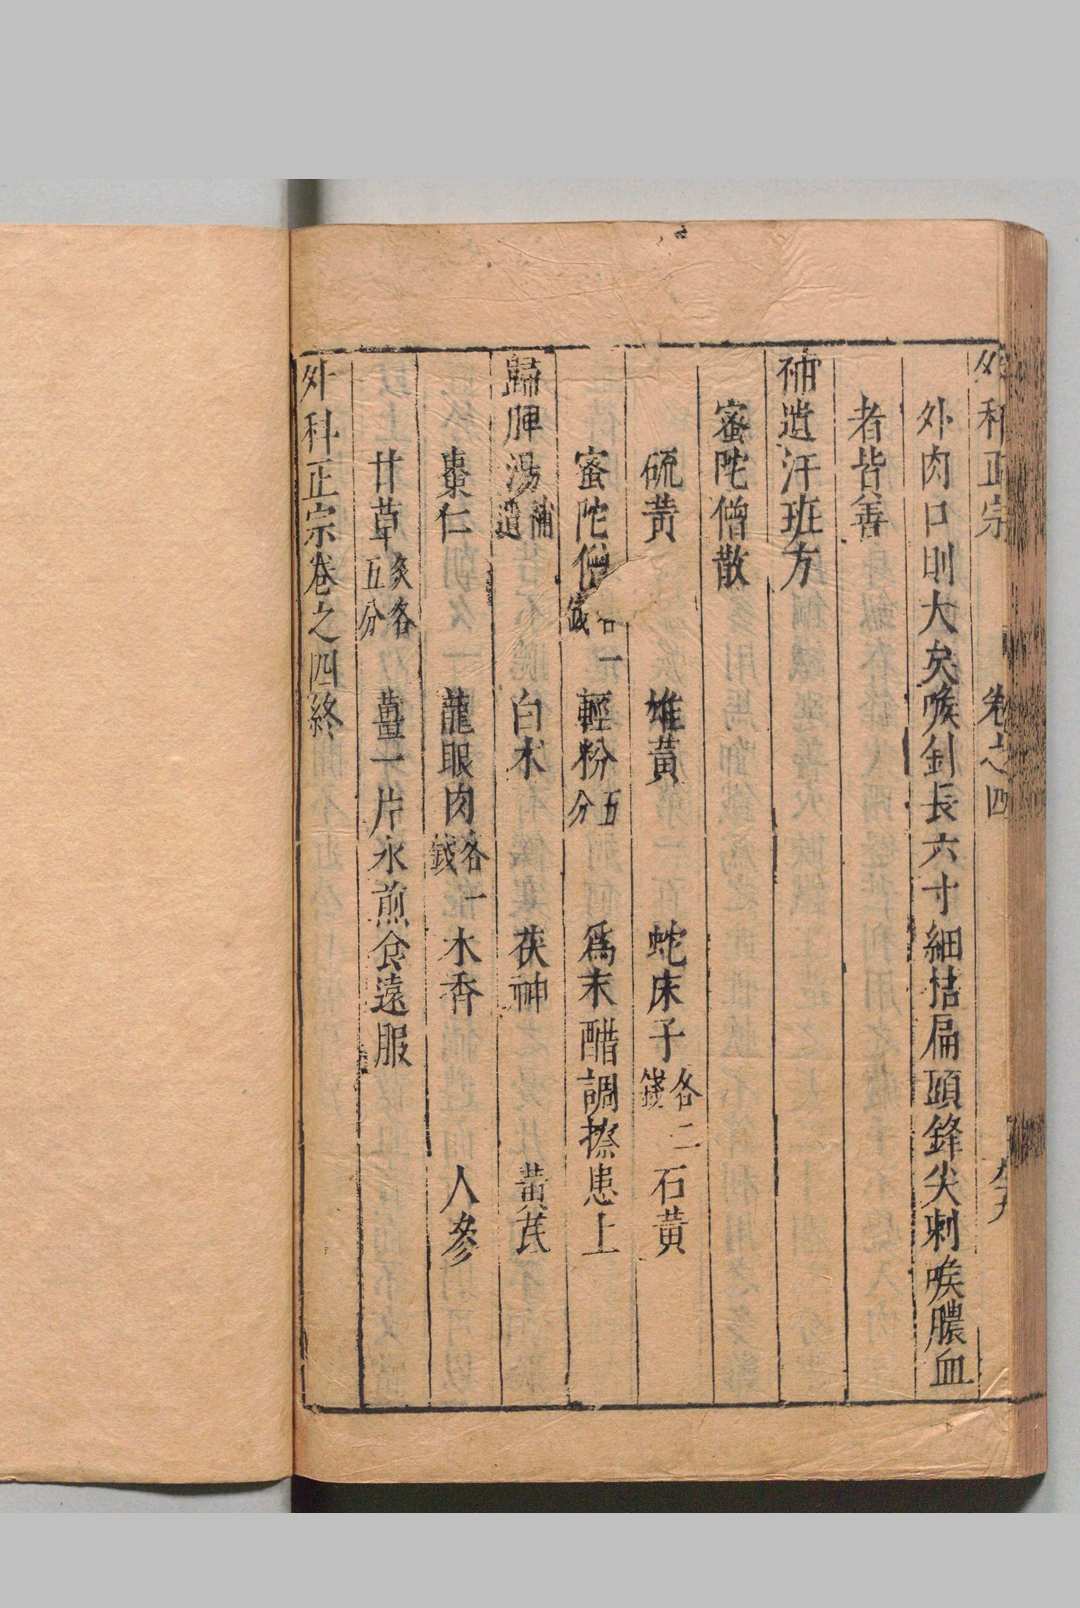 外科正宗 卷之四
外肉口則大矣喉針長六寸細梃扁頭鋒尖刺喉膿血
者皆善
補遺汗班方
蜜陀僧散
硫黃 雄黃 蛇床子各二錢 石黃
蜜陀僧各一錢 輕粉五分 爲末醋調擦患上
歸脾湯補遺 白朮 茯神 黃芪
棗仁 龍眼肉各一錢 木香 人參
甘草炙各五分 薑一片水煎食遠服
外科正宗卷之四終